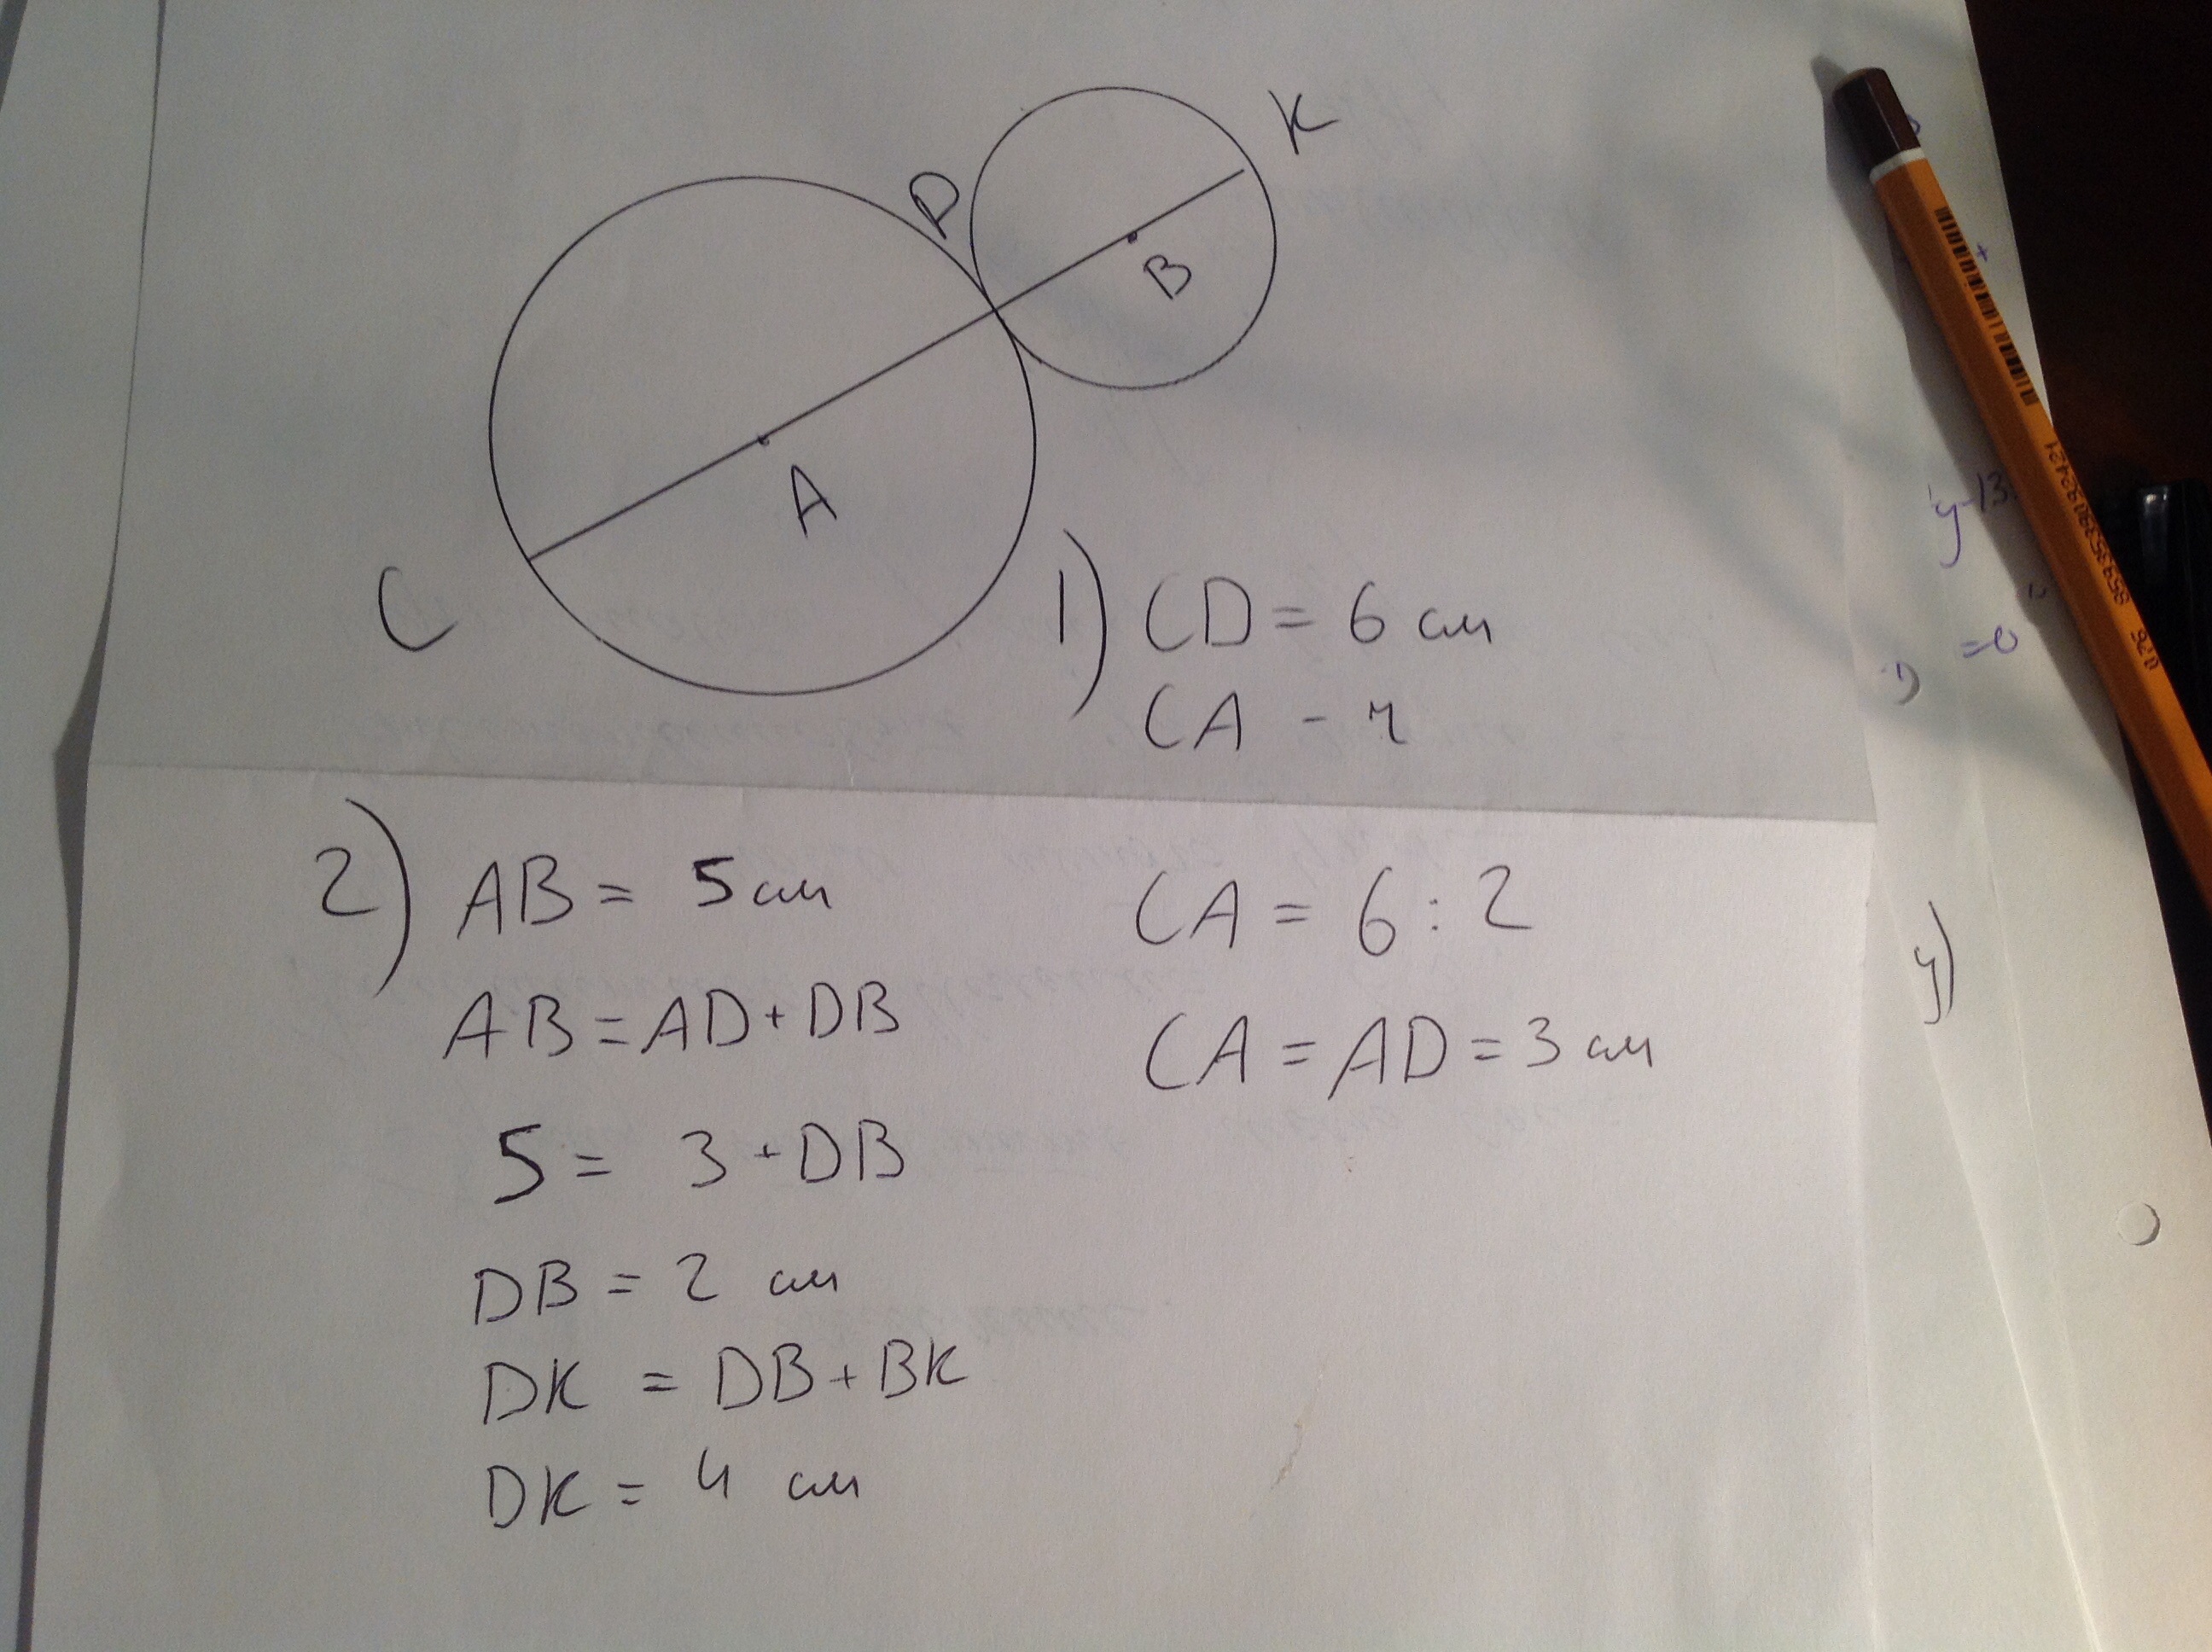 K
D
B
A
C
1) CD = 6 см
CA - r
2) AB = 5 см
AB = AD + DB
5 = 3 + DB
DB = 2 см
DK = DB + BK
DK = 4 см
CA = 6 : 2
CA = AD = 3 см
y-13
=0
y)